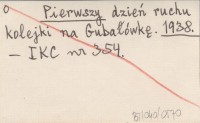 o Pierwszy dzień ruchu
kolejki na Gubałówkę. 1938.
– IKC nr 354.